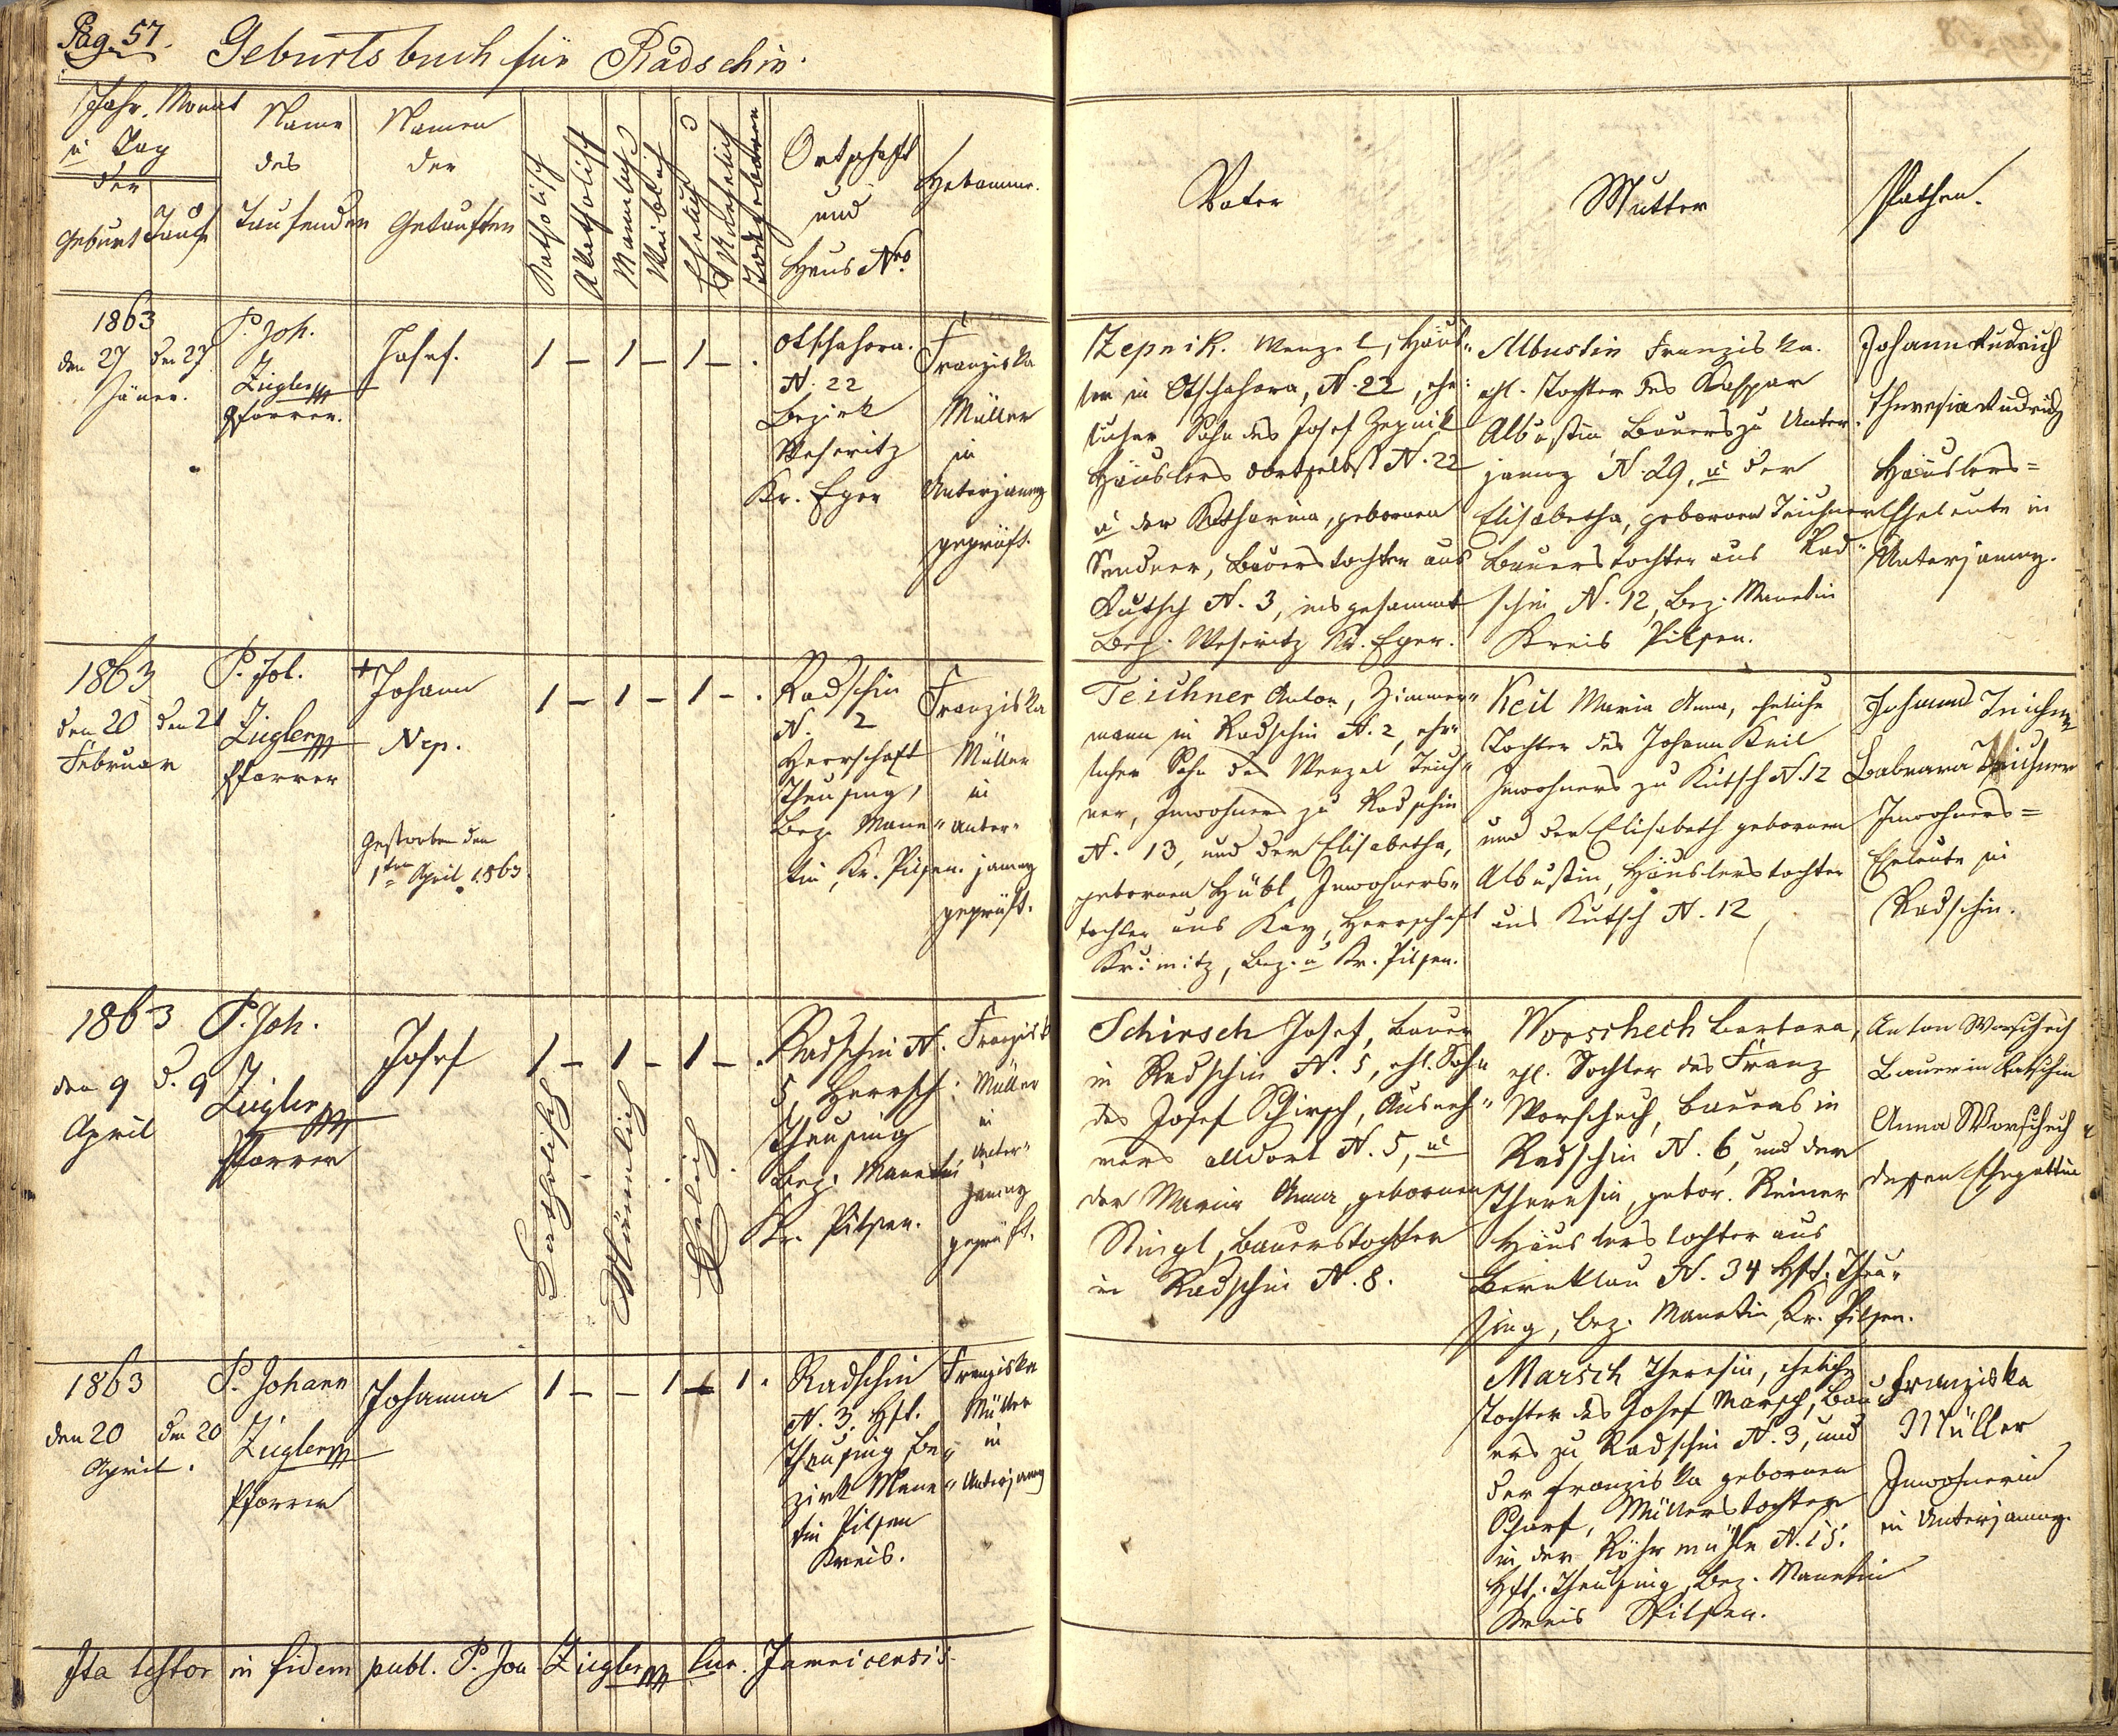 Pag. 57.
Geburtsbuch für Radschin.
Jahr, Monat
u Tag
der
Geburt
Taufe
Name
des
Taufenden
Namen
der
Getauften
Katholisch
Akatholisch
Männlich
Weiblich
Ehelich
Unehelich
Todgeboren
Ortschaft
und
Haus Nro.
Hebamme.
Vater
Mutter
Pathen.
1863
den 27 den 27
Jäner.
P. Joh.
Ziegler
Pfarrer.
Josef.
1 – 1 – 1 – .
Otschahora.
N. 22
Bezirk
Weseritz
Kr. Eger
Franziska
Müller
in
Unterjamny
geprüft.
Zepnik. Wenzel, Häus„
ler in Otschahora, N. 22, ehe:
licher Sohn des Josef Zepnik
Häuslers dortselbst N. 22
u der Katharina, gebornen
Sendner, Bauerstochter aus
Kutsch N. 3, insgesammt
Bez. Weseritz Kr. Eger.
Albustin Franziska.
ehl. Tochter des Kaspar
Albustin Bauers zu Unter„
jamny N. 29, u der
Elisabetha, gebornen Teichner
Bauerstochter aus Rad„
schin N. 12, Bez. Manetin
Kreis Pilsen.
Johann Rudrich
Theresia Rudrich
Häuslers=
Eheleute in
Unterjamny.
1863
den 20 den 21
Februar
P. Joh.
Ziegler
Pfarrer
+ Johann
Nep.
Gestorben den
1ten April 1863
1 – 1 – 1 – .
Radschin
N. 2
Herrschaft
Theusing,
Bez. Mane„
tin, Kr. Pilsen.
Franziska
Müller
in
Unter„
jamny
geprüft.
Teichner Anton, Zimmer„
mann in Radschin N. 2, ehe„
licher Sohn des Wenzel Teich„
ner, Inwohners zu Radschin
N. 13, und der Elisabetha,
gebornen Hübl Inwohners„
tochter aus Kay, Herrschaft
Krimitz, Bez. u Kr. Pilsen.
Keil Maria Anna, eheliche
Tochter des Johann Keil
Inwohners zu Kutsch N. 12
und der Elisabeth gebornen
Albustin, Häuslerstochter
aus Kutsch N. 12
Johann Teichner
Babrara Teichner
Inwohners=
Eheleute in
Radschin.
1863
den 9 d. 9
April
P. Joh.
Ziegler
Pfarrer
Josef
1 – 1 – 1 – .
Katholisch
Männlich
Ehelich
Radschin N.
5, Herrsch:
Theusing
Bez. Manetin
Kr. Pilsen.
Franziska
Müller
in
Unter„
jamny
geprüft.
Schirsch Josef, Bauer
in Radschin N. 5, ehl. Sohn
des Josef Schirsch, Ausneh„
mers alldort N. 5, u
der Maria Anna gebornen
Stingl, Bauerstochter
in Radschin N. 8.
Worschech Barbara,
ehl. Tochter des Franz
Worschech, Bauers in
Radschin N. 6, und der
Theresia, gebor. Reiner
Häuslerstochter aus
Bernklau N. 34 Hft. Theu„
sing, Bez. Manetin, Kr. Pilsen.
Anton Worschech
Bauer in Ratschin
Anna Worschech
dessen Ehegattin
1863
den 20 den 20
April.
P. Johann
Ziegler
Pfarrer
Johanna
1 – – 1 – 1 .
Radschin
N. 3, Hft.
Theusing Be„
zirk Mane„
tin Pilsen
Kreis.
Franziska
Müller
in
Unterjamny
Marsch Theresia, eheliche
Tochter des Josef Marsch, Bau„
ers zu Radschin N. 3, und
der Franziska gebornen
Scharf, Müllerstochter
in der Röhrmühle N. 15.
Hft. Theusing, Bez. Manetin
Kreis Pilsen.
Franziska
Müller
Inwohnerin
in Unterjamny.
Ita testor in fidem publ. P. Joh Ziegler Cur. Jamnicensis.